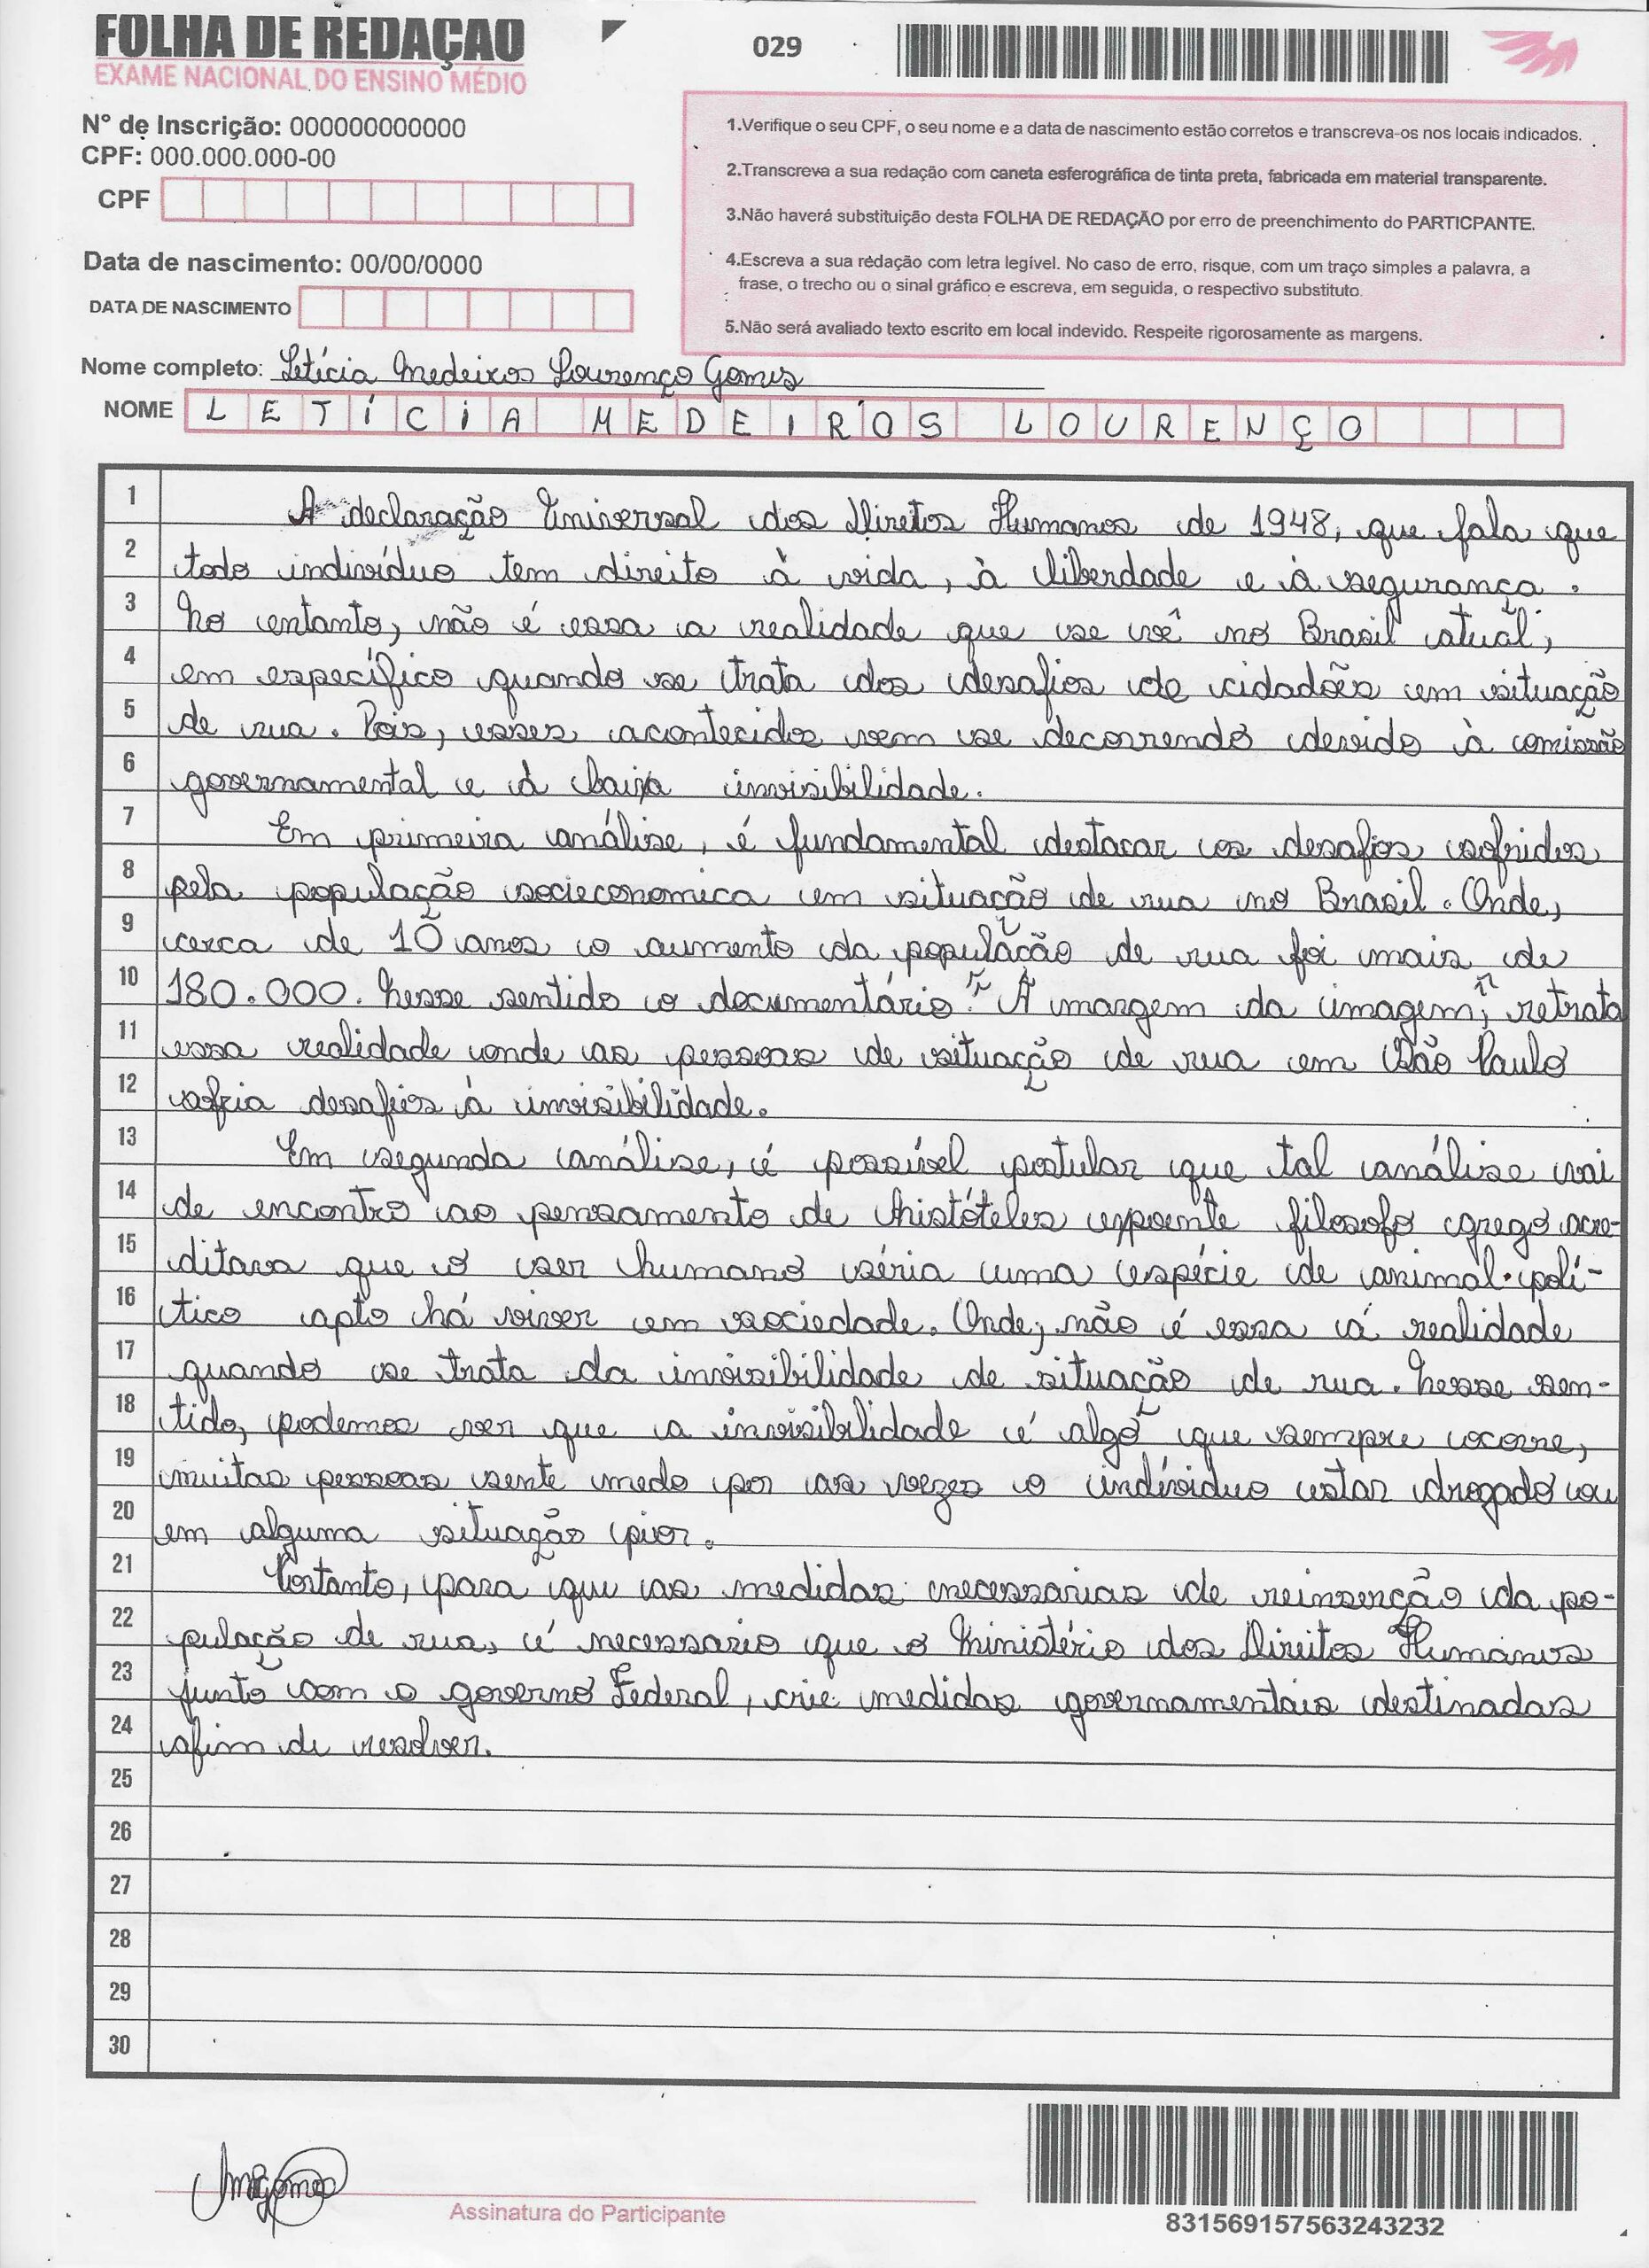 FOLHA DE REDAÇÃO
EXAME NACIONAL DO ENSINO MÉDIO
029
N° de Inscrição: 000000000000
CPF: 000.000.000-00
CPF
Data de nascimento: 00/00/0000
DATA DE NASCIMENTO
1.Verifique o seu CPF, o seu nome e a data de nascimento estão corretos e transcreva-os nos locais indicados.
2.Transcreva a sua redação com caneta esferográfica de tinta preta, fabricada em material transparente.
3.Não haverá substituição desta FOLHA DE REDAÇÃO por erro de preenchimento do PARTICPANTE.
4.Escreva a sua redação com letra legível. No caso de erro, risque, com um traço simples a palavra, a
frase, o trecho ou o sinal gráfico e escreva, em seguida, o respectivo substituto.
5.Não será avaliado texto escrito em local indevido. Respeite rigorosamente as margens.
Nome completo: Letícia Medeiros Lourenço Gomes
NOME LETÍCIA MEDEIROS LOURENÇO
1 A declaração Universal dos Direitos Humanos de 1948, que fala que
2 todo indivíduo tem direito à vida, à liberdade e à segurança.
3 No entanto, não é essa a realidade que se vê no Brasil atual,
4 em específico quando se trata dos desafios de cidadões em situação
5 de rua. Pois, esses acontecidos vem se decorrendo devido à comissão
6 governamental e à baixa invisibilidade.
7 Em primeira análise, é fundamental destacar os desafios sofridos
8 pela população socieconomica em situação de rua no Brasil. Onde,
9 cerca de 10 anos o aumento da população de rua foi mais de
10 180.000. Nesse sentido o documentário "À margem da imagem", retrata
11 essa realidade onde as pessoas de situação de rua em São Paulo
12 sofria desafios à invisibilidade.
13 Em segunda análise, é possível postular que tal análise vai
14 de encontro ao pensamento de Aristóteles expoente filosofo grego acre-
15 ditava que o ser humano séria uma espécie de animal polí-
16 tico apto há viver em sociedade. Onde, não é essa á realidade
17 quando se trata da invisibilidade de situação de rua. Nesse sen-
18 tido, podemos ver que a invisibilidade é algo que sempre ocorre,
19 muitas pessoas sente medo por as vezes o indivíduo estar drogado ou
20 em alguma situação pior.
21 Portanto, para que as medidas necessarias de reinserção da po-
22 pulação de rua, é necessario que o Ministério dos Direitos Humanos
23 junto com o governo Federal, crie medidas governamentais destinadas
24 afim de resolver.
25
26
27
28
29
30
Assinatura do Participante
831569157563243232